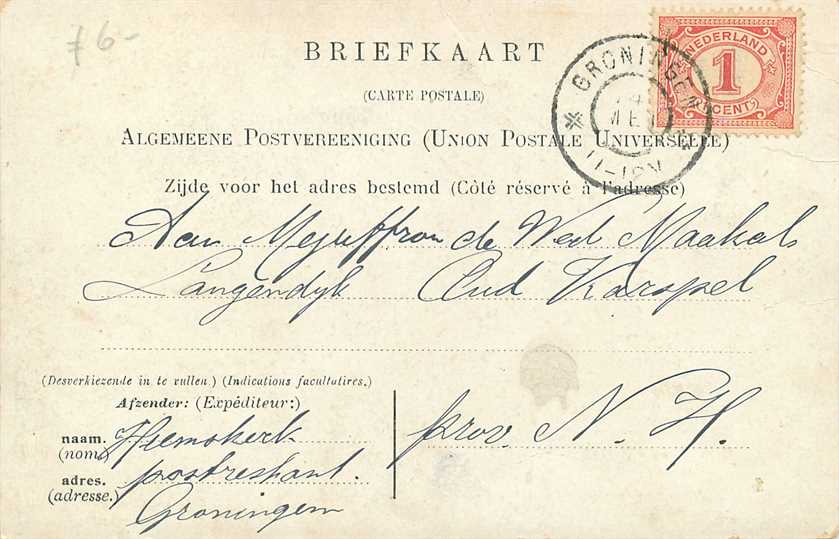 f 6-
BRIEFKAART
(CARTE POSTALE)
ALGEMEENE POSTVEREENIGING (UNION POSTALE UNIVERSELLE)
Zijde voor het adres bestemd (Côté réservé à l'adresse)
NEDERLAND
1
(1 CENT)
GRONINGEN
MEI
11-12V
Aan Mejuffrou de Wed Maakals
Langendyk Oud Karspel
prov. N. H.
(Desverkiezende in te vullen.) (Indications facultatires.)
Afzender: (Expéditeur:)
naam. Hiemskerk
(nom)
adres. postrestant.
(adresse.) Groningen